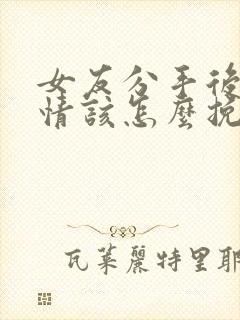 女友分手後
情該怎麼挽
瓦萊麗特里耶